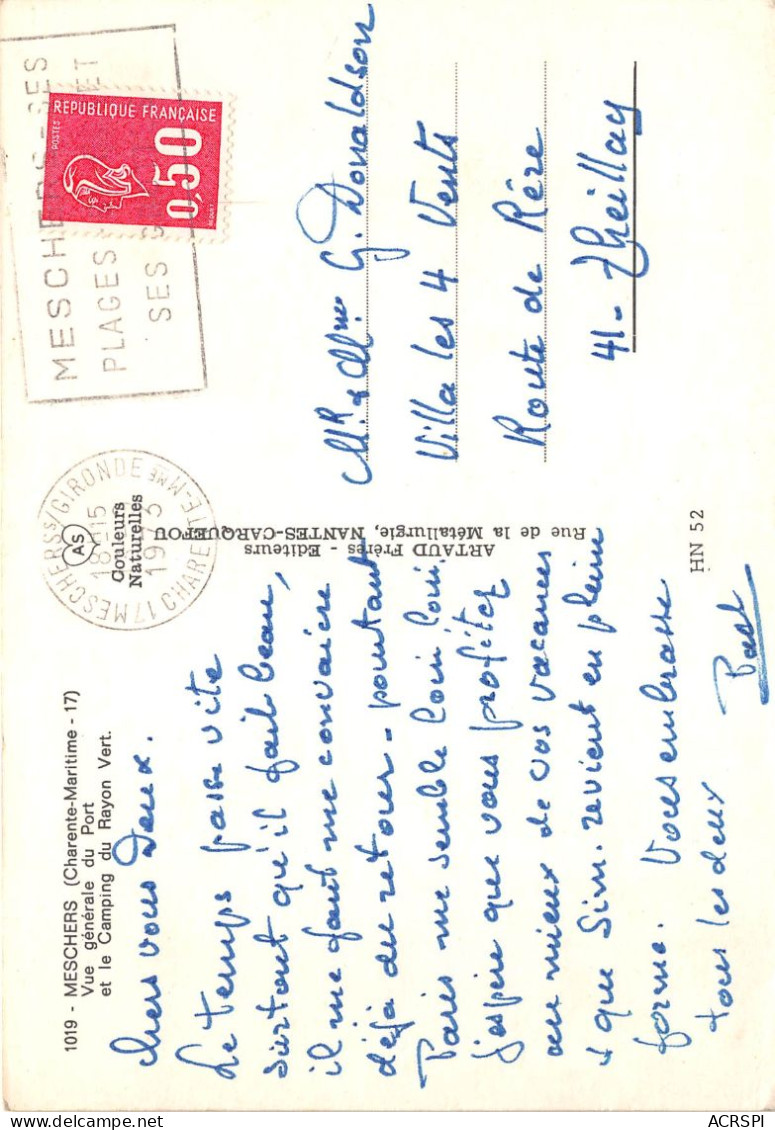 1019 - MESCHERS (Charente-Maritime - 17)
Vue générale du Port
et le Camping du Rayon Vert.
Chers vous Deux.
Le temps passe vite
surtout qu'il fait beau,
il me faut me convaicre
déjà du retour - pourtant
Paris me semble loin loin,
j'espère que vous profitez
au mieux de vos vacances
+ que Sim. revient en pleine
forme. Vous embrasse
tous les deux
AS
Couleurs
Naturelles
ARTAUD Frères - Editeurs
Rue de la Métallurgie, NANTES-CARQUEFOU
HN 52
17 MESCHERS S/GIRONDE
18-15
1975
CHARENTE-MME
MESCHERS - SES
PLAGES ET
SES
REPUBLIQUE FRANÇAISE
POSTES
0,50
Mr. & Mme. G. Donaldson
Villa les 4 Vents
Route de Rère
41 - Theillay
delcampe.net
ACRSPI